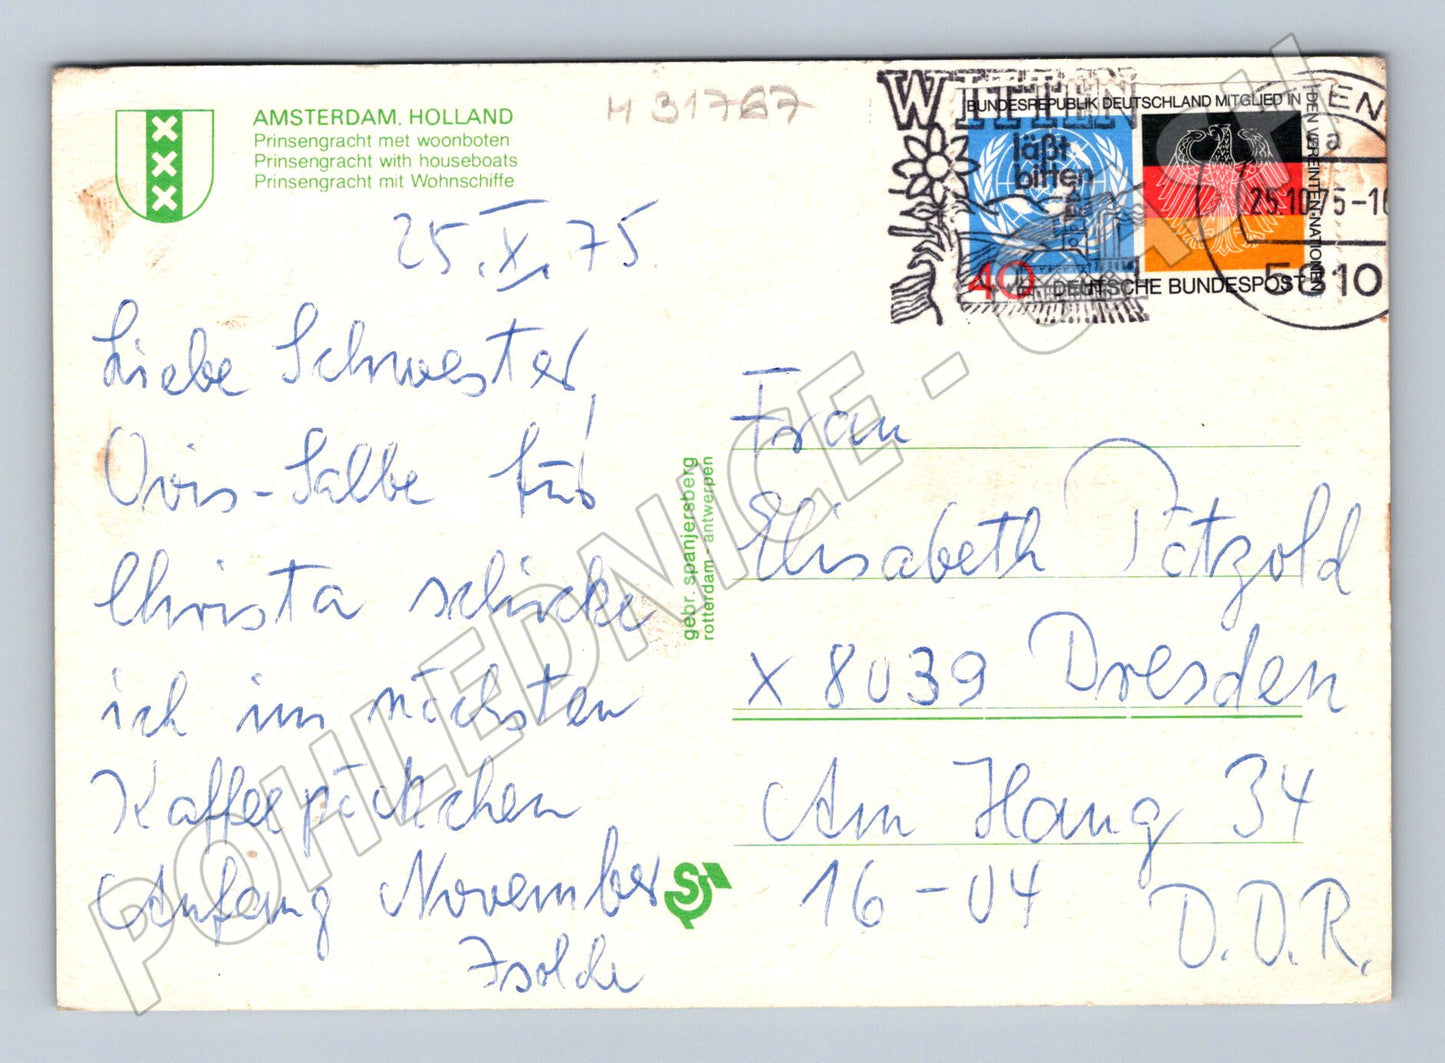 AMSTERDAM, HOLLAND
Prinsengracht met woonboten
Prinsengracht with houseboats
Prinsengracht mit Wohnschiffe
H 31767
25.X.75.
Liebe Schwester!
Ovis-Salbe für
Christa schicke
ich im nächsten
Kaffeepäckchen
Anfang November
Isolde
gebr. spanjersberg
rotterdam - antwerpen
WITTEN
läßt
bitten
BUNDESREPUBLIK DEUTSCHLAND MITGLIED IN
DEN VEREINTEN NATIONEN
40
DEUTSCHE BUNDESPOST
EN
a
25.10.75-16
5810
Frau
Elisabeth Pätzold
X 8039 Dresden
Am Hang 34
16-04 D.D.R.
S
POHLEDNICE - O.CH